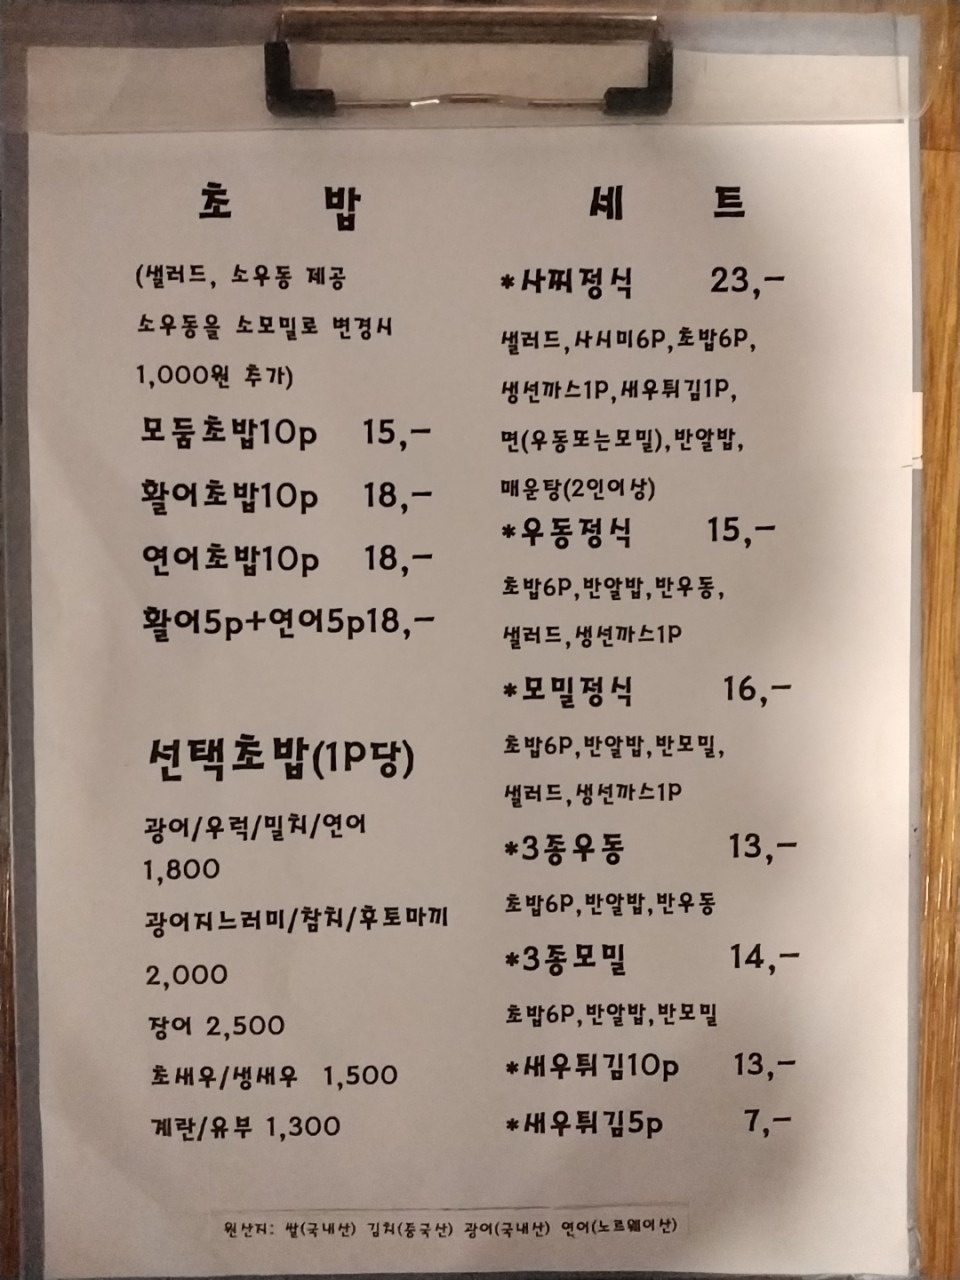 초 밥
(샐러드, 소우동 제공
소우동을 소모밀로 변경시
1,000원 추가)
모둠초밥10p 15,-
활어초밥10p 18,-
연어초밥10p 18,-
활어5p+연어5p18,-
선택초밥(1P당)
광어/우럭/밀치/연어
1,800
광어지느러미/참치/후토마끼
2,000
장어 2,500
초새우/생새우 1,500
계란/유부 1,300
세 트
*사찌정식 23,-
샐러드,사시미6P,초밥6P,
생선까스1P,새우튀김1P,
면(우동또는모밀),반알밥,
매운탕(2인이상)
*우동정식 15,-
초밥6P,반알밥,반우동,
샐러드,생선까스1P
*모밀정식 16,-
초밥6P,반알밥,반모밀,
샐러드,생선까스1P
*3종우동 13,-
초밥6P,반알밥,반우동
*3종모밀 14,-
초밥6P,반알밥,반모밀
*새우튀김10p 13,-
*새우튀김5p 7,-
원산지: 쌀(국내산) 김치(중국산) 광어(국내산) 연어(노르웨이산)